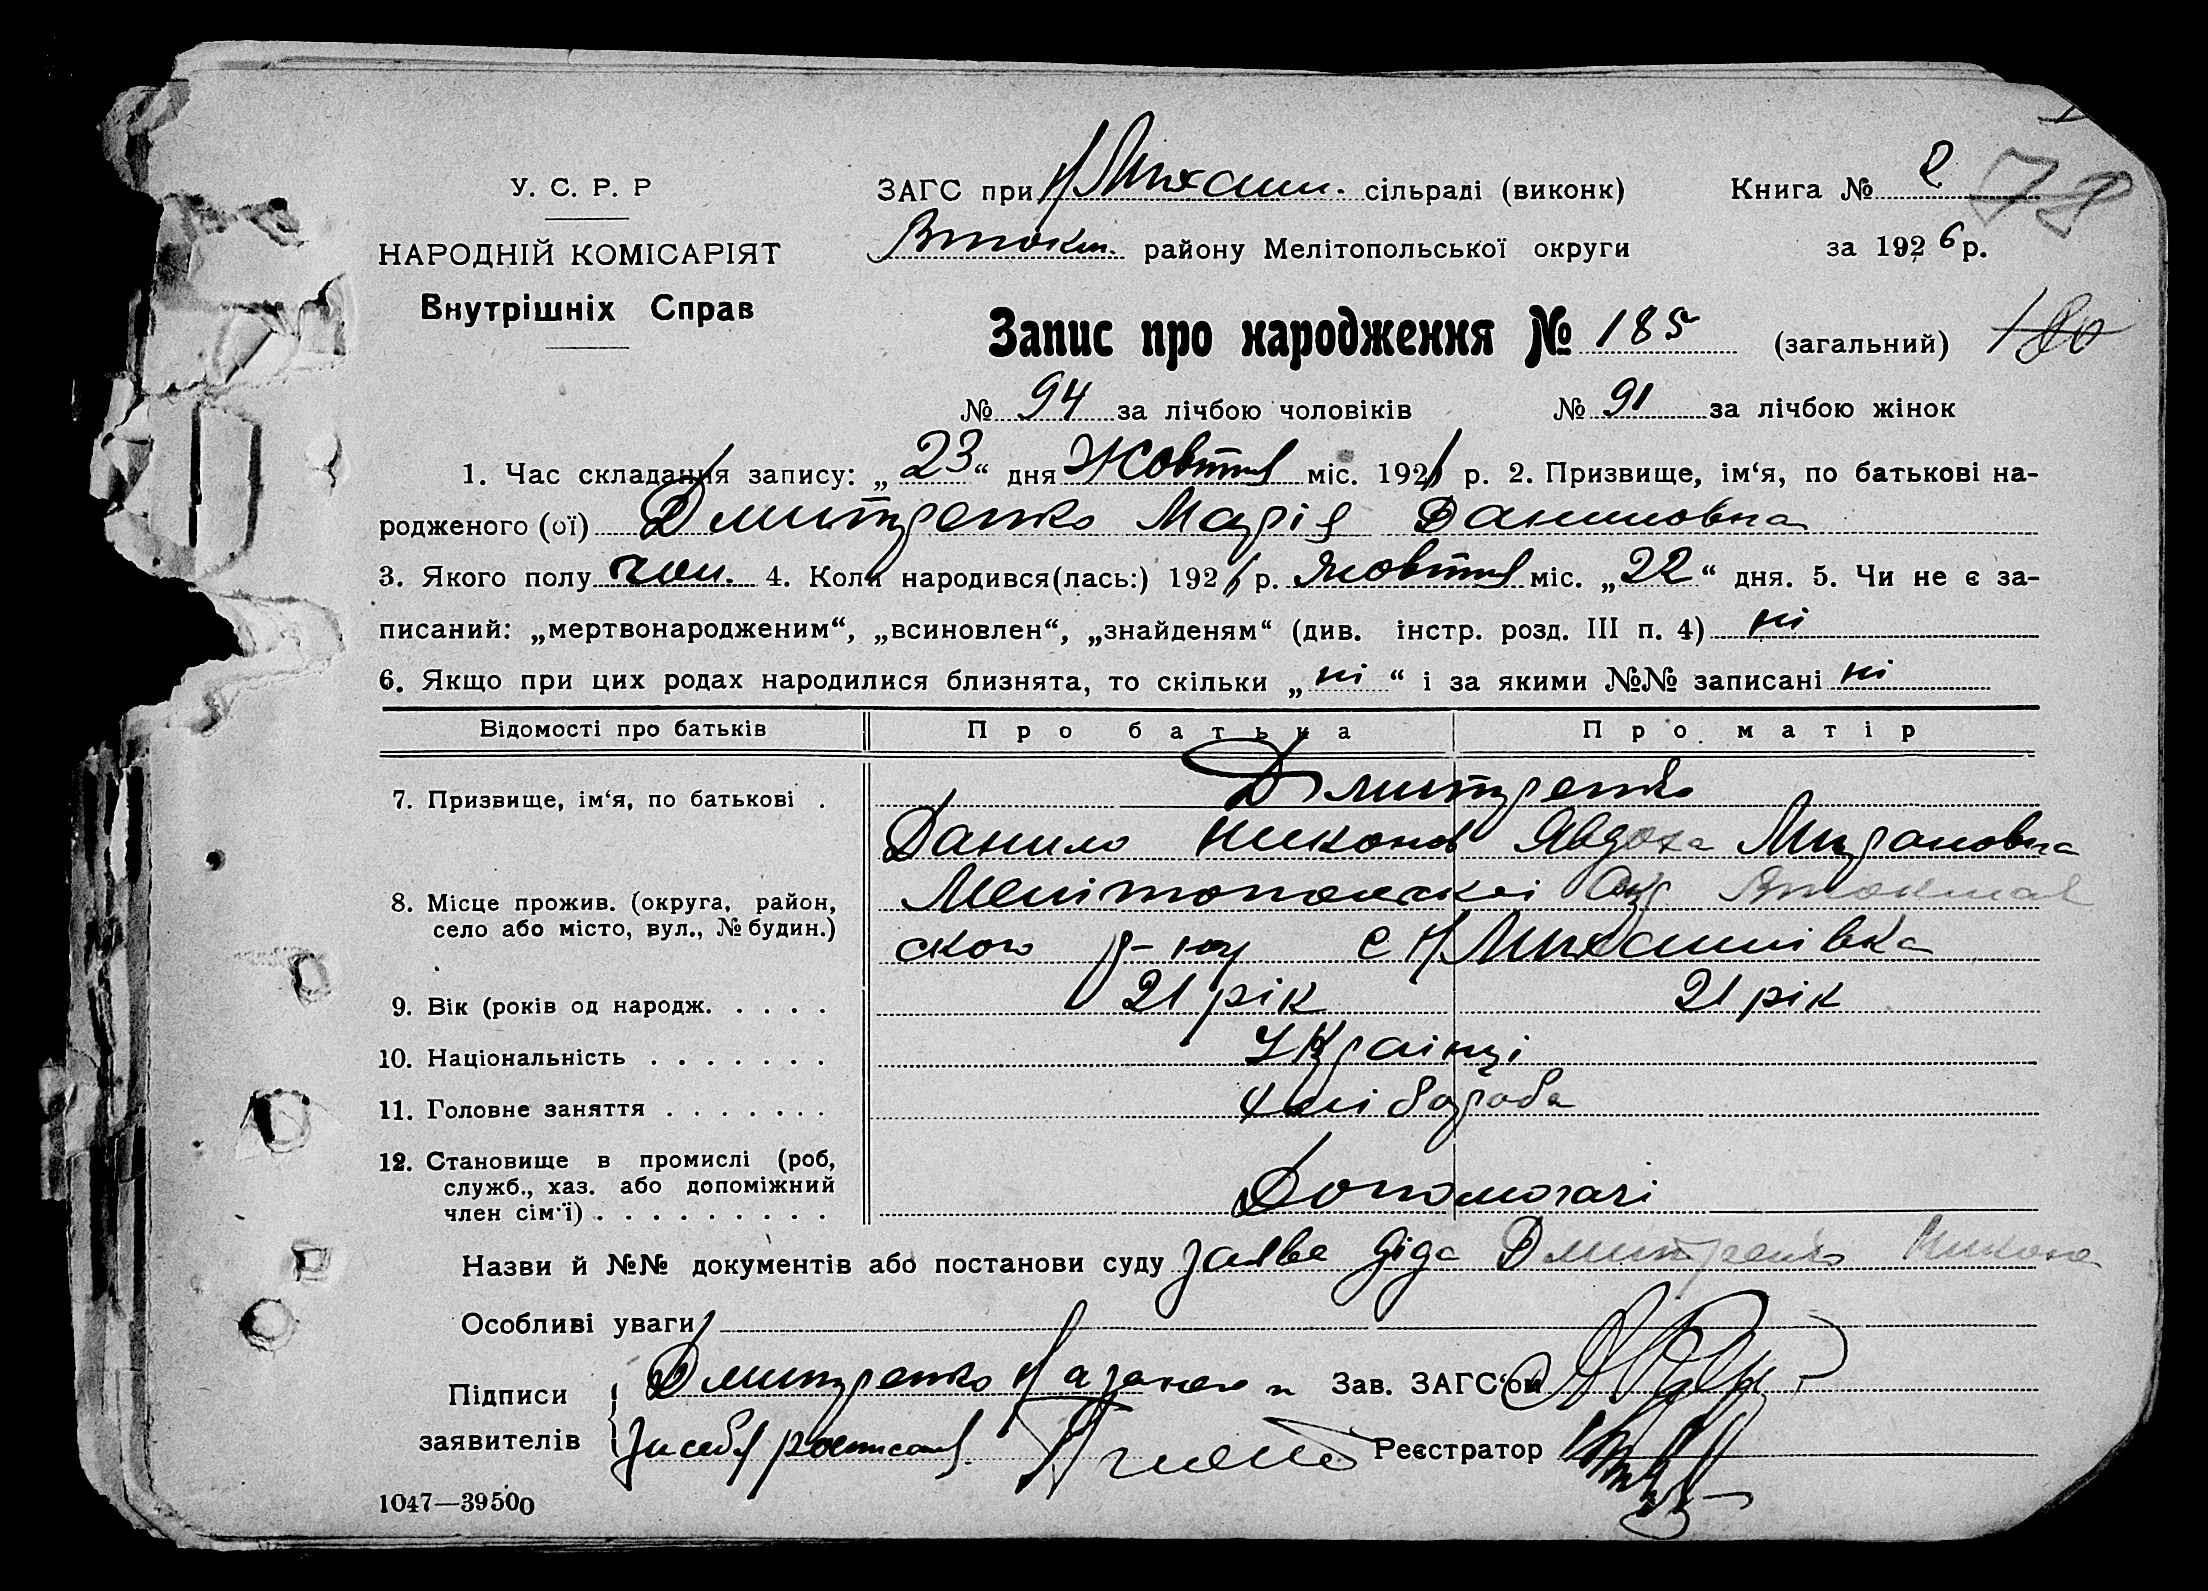 У. С. Р. Р
НАРОДНІЙ КОМІСАРІЯТ
Внутрішніх Справ
ЗАГС при Н Михайл. сільраді (виконк)
Книга № 2
78
Втокм. району Мелітопольської округи
за 1926 р.
Запис про народження № 185 (загальний) 180
№ 94 за лічбою чоловіків № 91 за лічбою жінок
1. Час складання запису: „23“ дня Жовтня міс. 1926 р. 2. Призвище, ім‘я, по батькові на-
родженого (ої) Дмитренко Марія Даниловна
3. Якого полу чол. 4. Коли народився(лась:) 1926 р. жовтня міс. „22“ дня. 5. Чи не є за-
писаний: „мертвонародженим“, „всиновлен“, „знайденям“ (див. інстр. розд. III п. 4) ні
6. Якщо при цих родах народилися близнята, то скільки „ні“ і за якими №№ записані ні
Відомості про батьків Про батька Про матір
7. Призвище, ім‘я, по батькові . Дмитренко
Данило Никонов Явдоха Мироновна
8. Місце прожив. (округа, район, село або місто, вул., № будин.) Мелітопольскої Окр. Втокмак
ского р-ну с Н Михайлівка
9. Вік (років од народж. . . . . 21 рік 21 рік
10. Національність . . . . . . . Українці
11. Головне заняття . . . . . . . Хлібороба
12. Становище в промислі (роб, служб., хаз. або допоміжний член сім‘ї) . . . . . . . . . Допомогачі
Назви й №№ документів або постанови суду заява діда Дмитренко Никона
Особливі уваги
Підписи заявителів
Дмитренко
Зав. ЗАГС‘ом
за себя росписався
Реєстратор
1047—39500